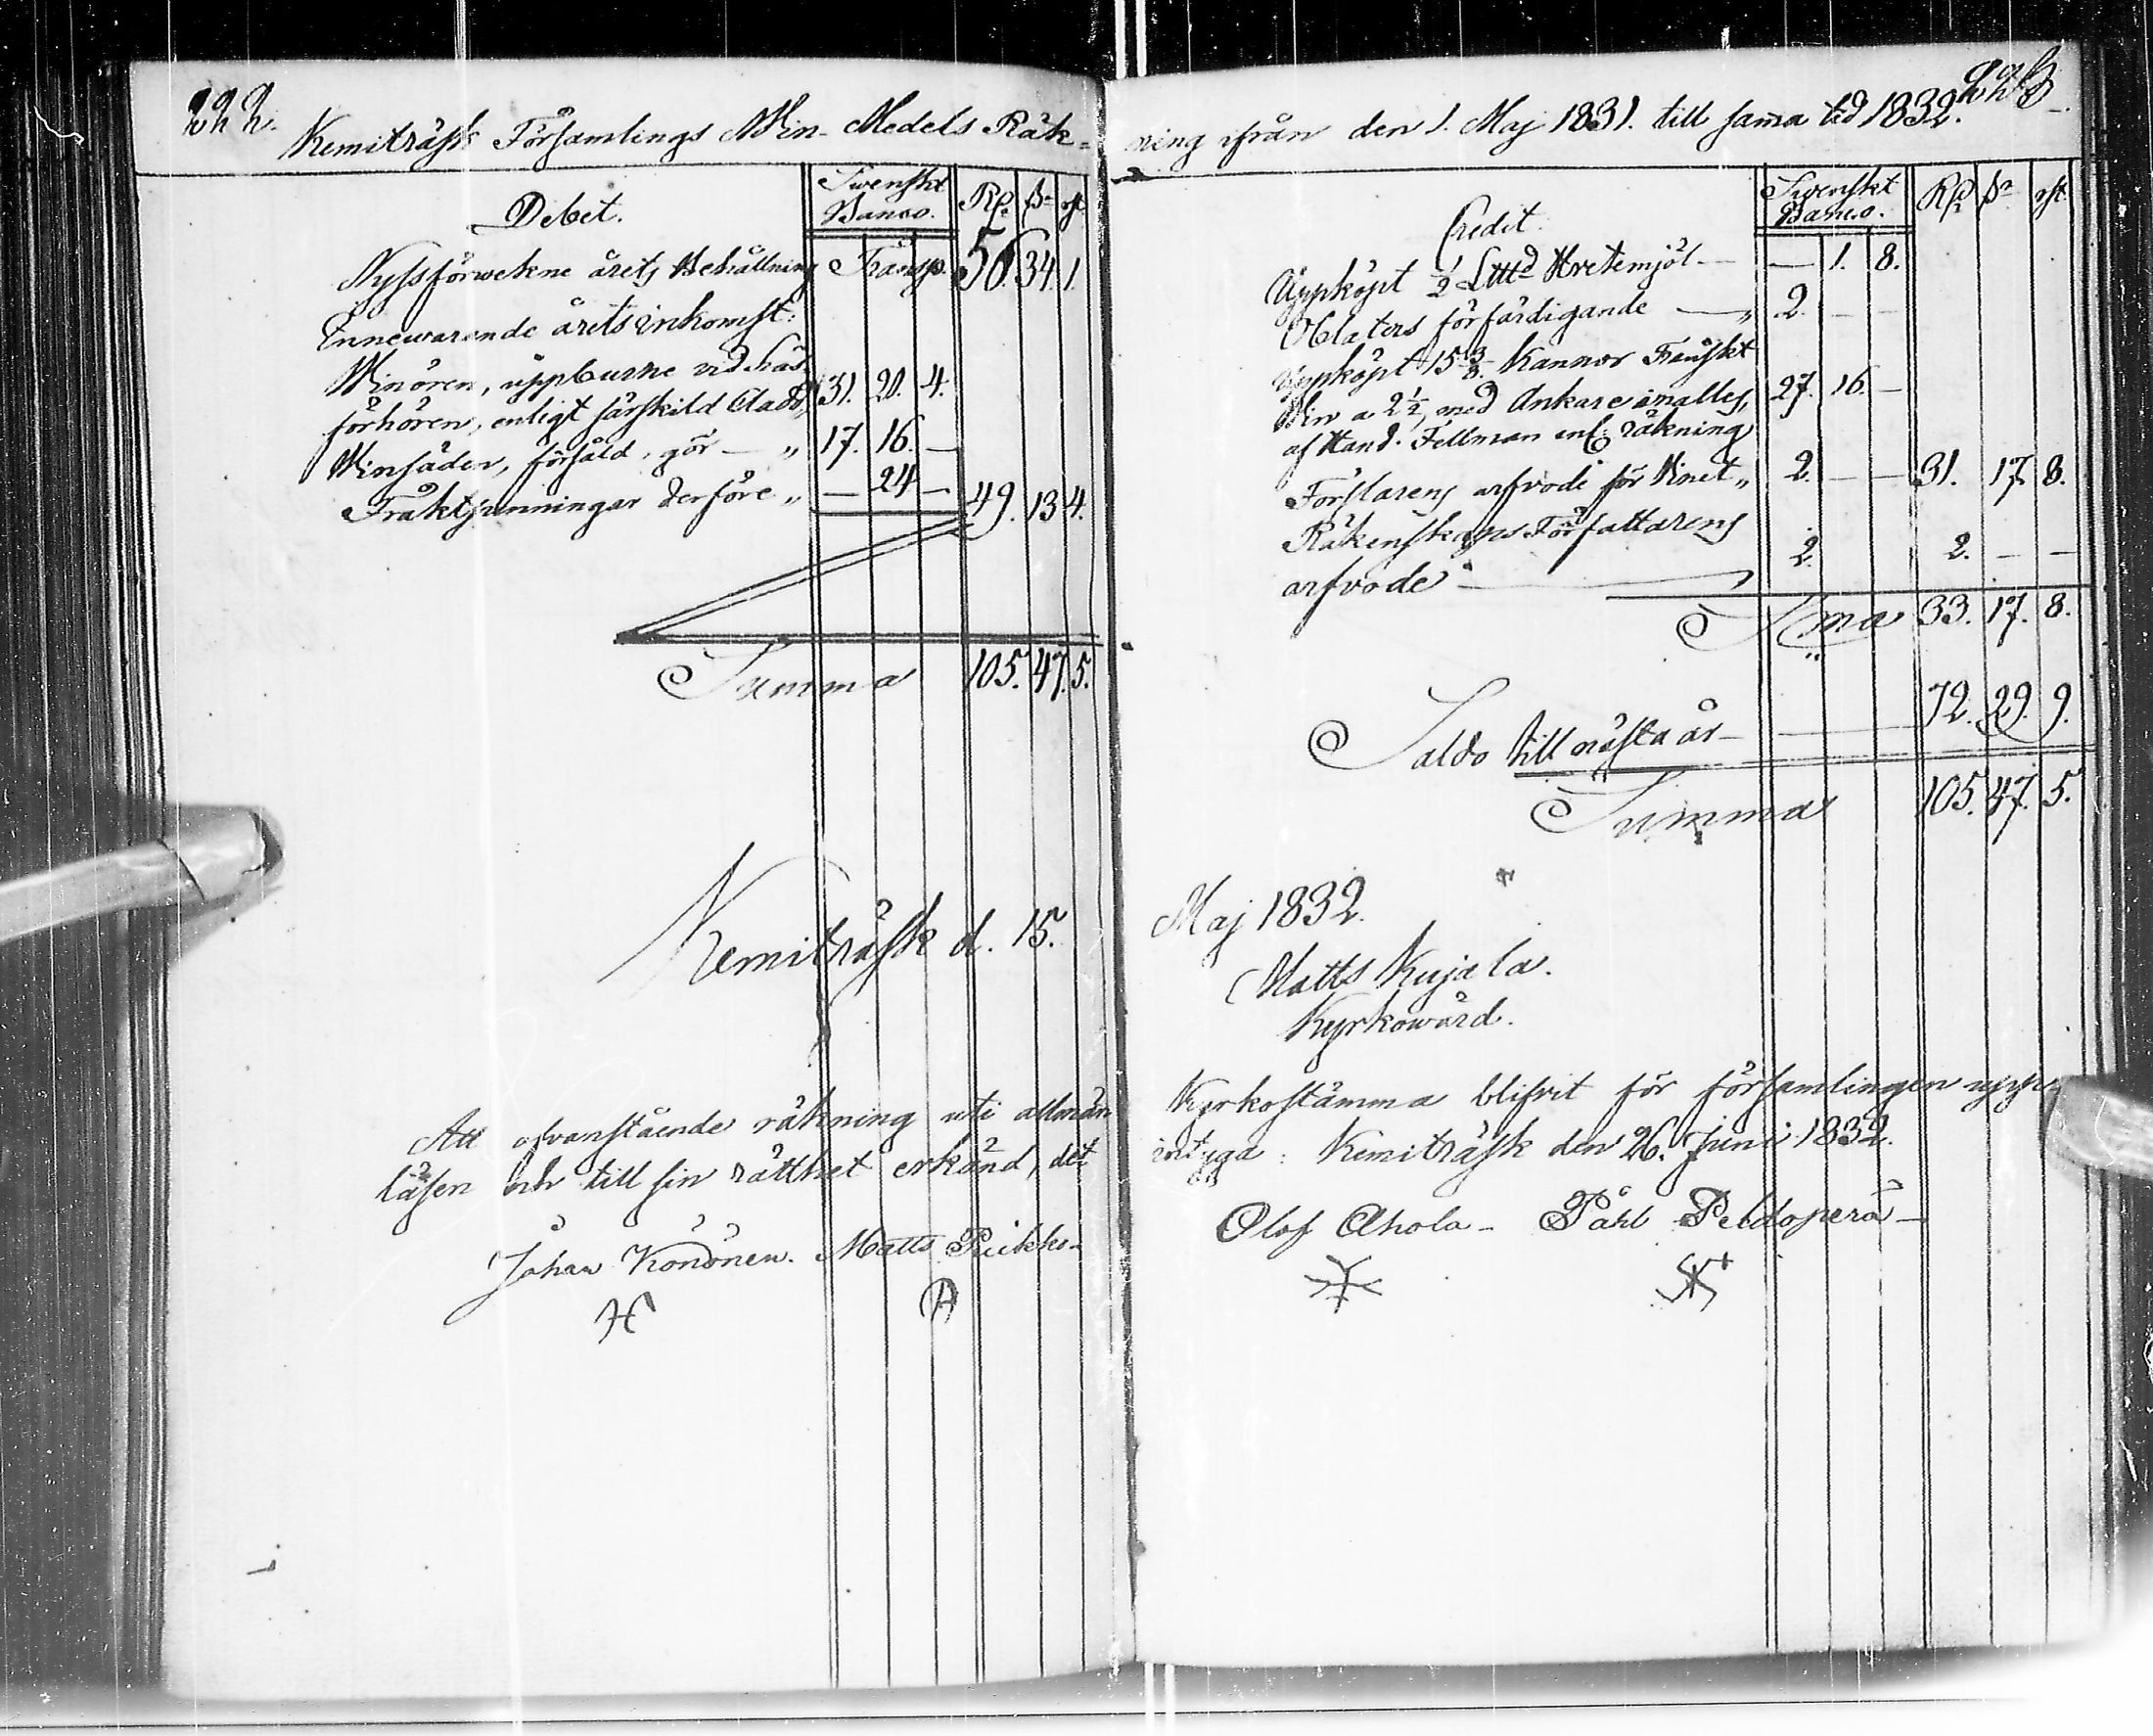 222.
Kemiträsk Församlings Win-Medels Räk-
Debet.
Swenskt Banco.
Rd. ß. rst.
Nyssförwekne årets Behållning Transp. 56. 34. 1.
Innewarande årets inkomst:
Winören, uppburne vid Läs-
förhören, enligt särskild Cladd, 31. 20. 4.
Winsäden, försåld, gör — „ 17. 16. —
Fraktpenningar derföre „ — 24 — 49. 13 4.
Summa 105. 47. 5.
Kemiträsk d. 15.
Att ofvanstående räkning uti allmän
läsen och till sin rätthet erkänd, det
Johan Kononen. Matts Puikko-
ning ifrån den 1. Maj 1831. till sama tid 1832.
223
Credit.
Swenskt Banco.
Rd. ß. rst.
Uppköpt ½ Lttd Hvetemjöl — — 1. 8.
Oblaters förfärdigande — „ 2. — —
Uppköpt 15 3/8 Kannor Franskt
Win a 2 ½, med Ankare inalles,
af Hand. Fellman enl: räkning 27. 16. —
Förslarens arfvode för Vinet „ 2. — — 31. 17. 8.
Räkenskaps Författarens
arfvode — 2. 2. — —
Sma 33. 17. 8.
Saldo till nästa år — 72. 29. 9.
Summa 105. 47. 5.
Maj 1832.
Matts Kujala.
Kyrkowärd.
Kyrkostämma blifvit för församlingen upp-
intyga: Kemiträsk den 26. Juni 1832.
Olof Ahola - Påhl Peldoperä -